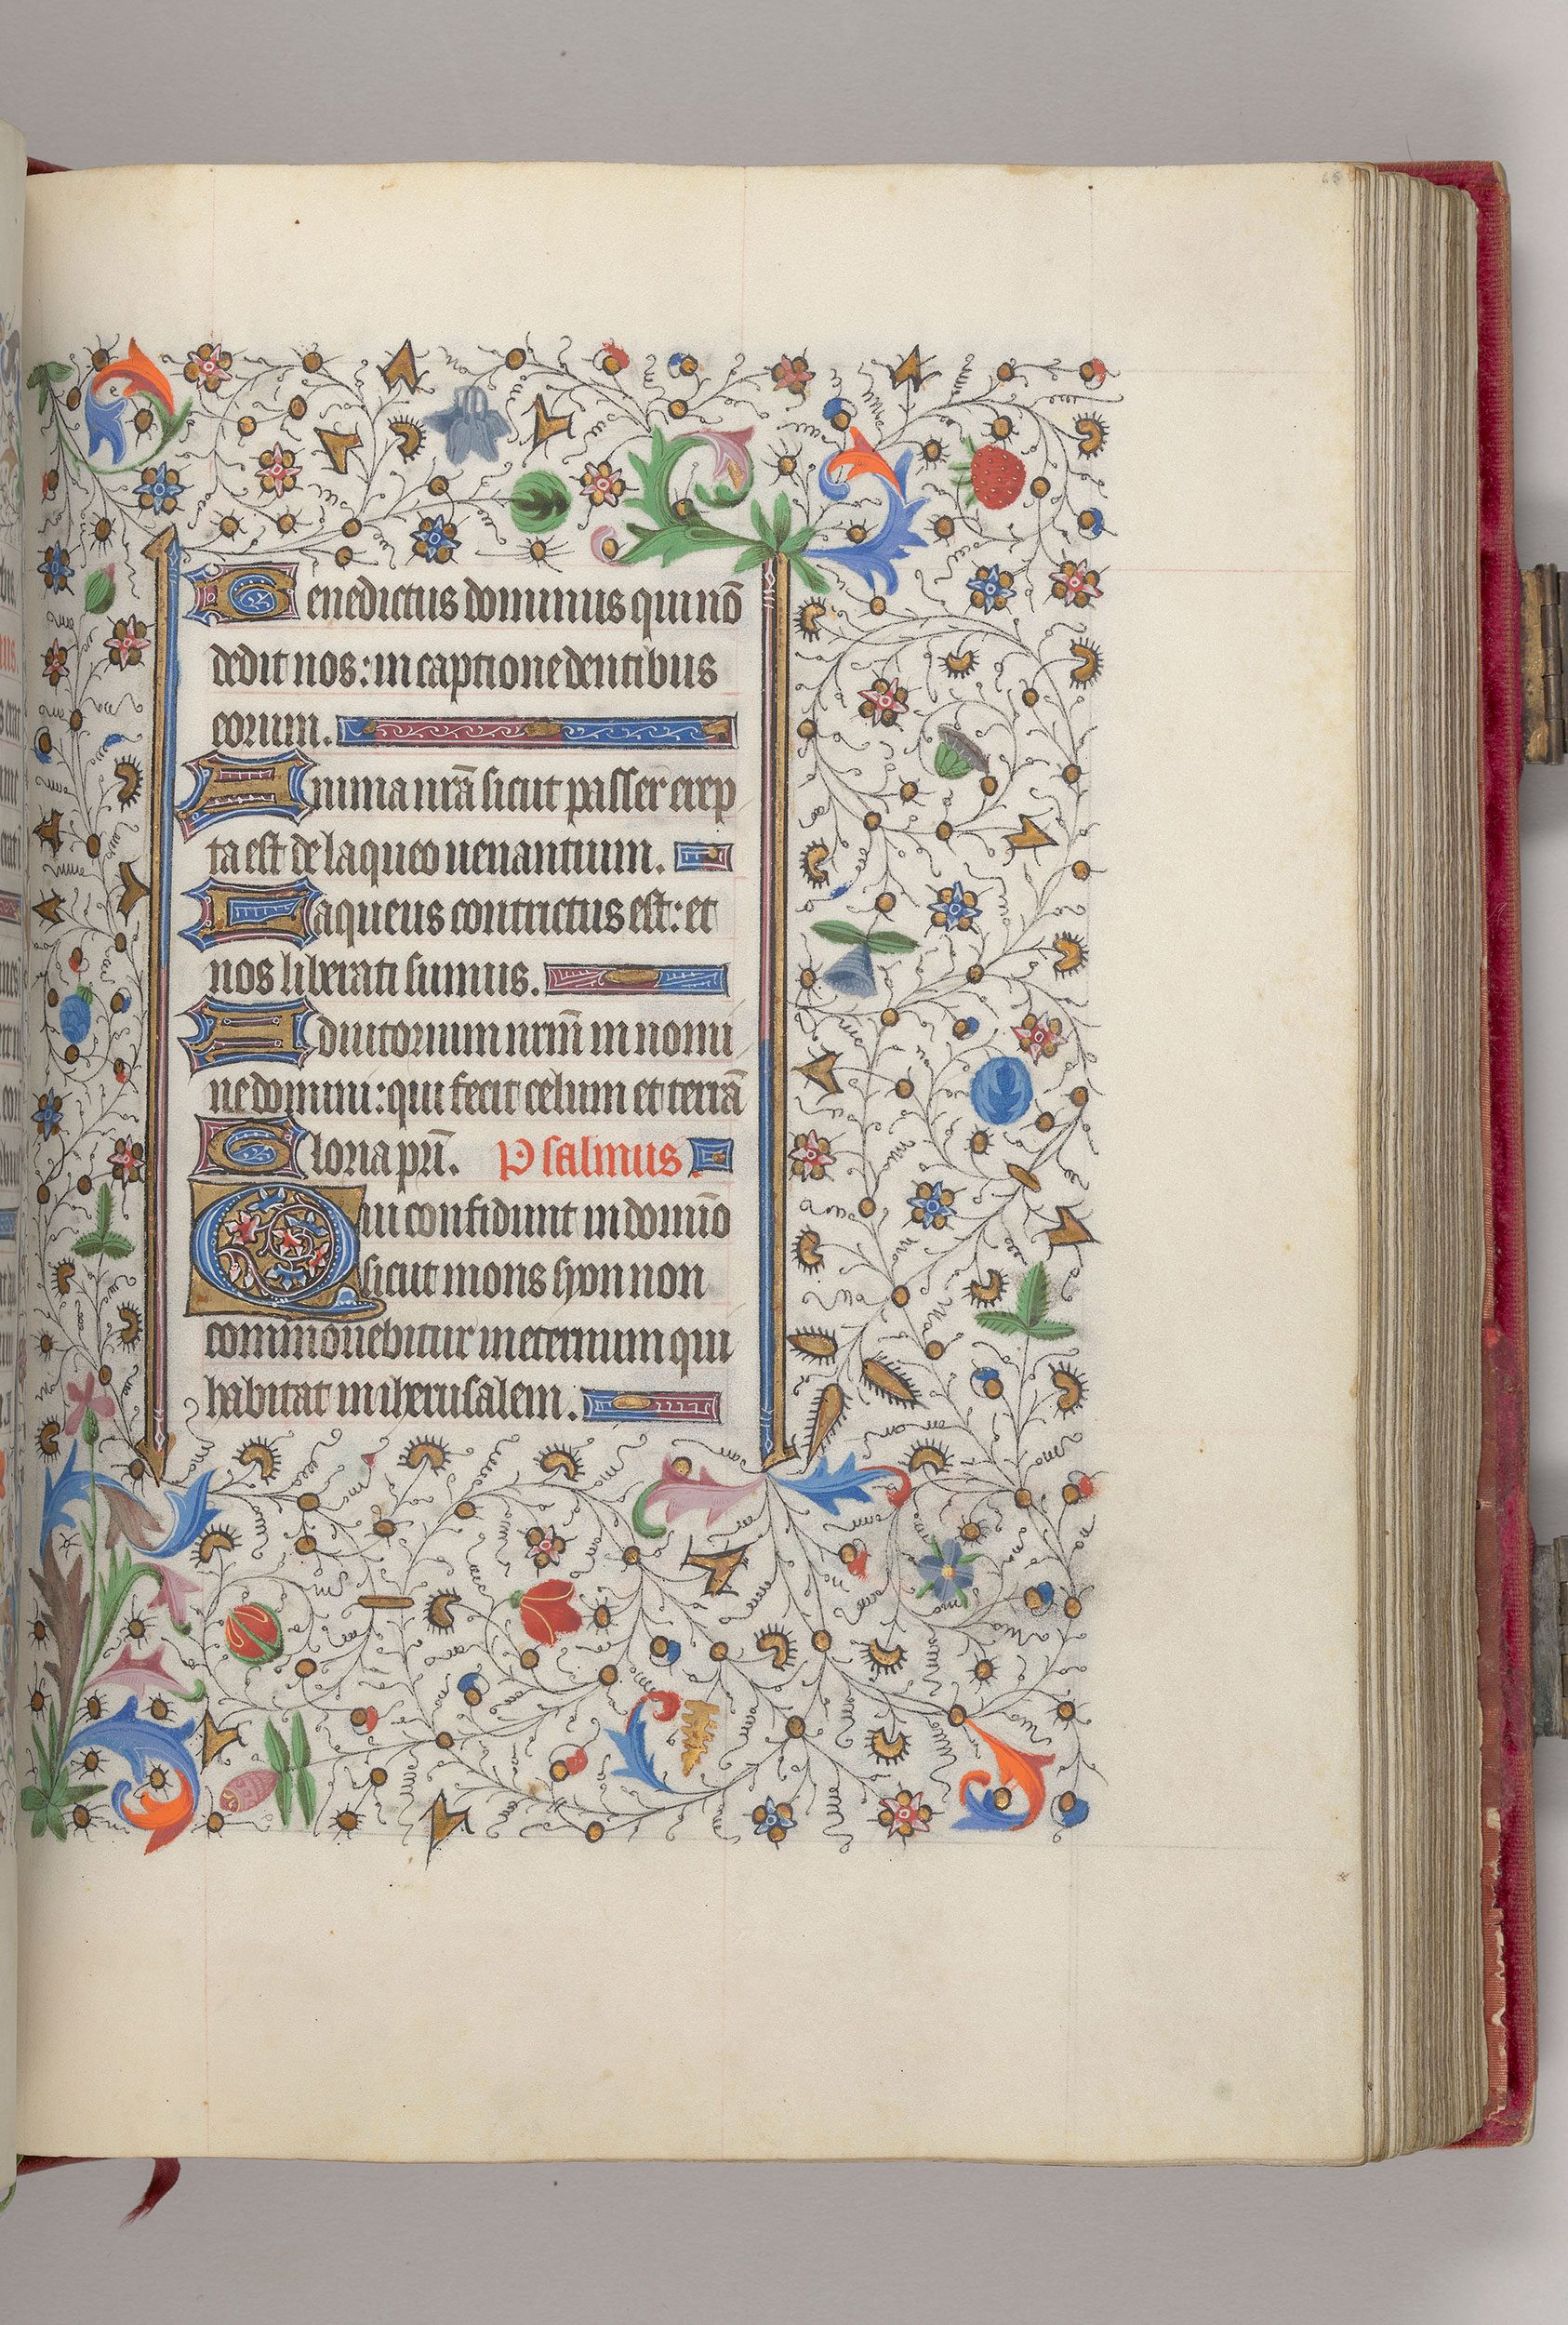 Benedictus dominus qui nō
dedit nos: in captione dentibus
eorum.
Anima nrā sicut passer erep
ta est de laqueo uenantium.
Laqueus contrictus est: et
nos liberati sumus.
Adiutorium nrm̄ in nomi
ne domini: qui fecit celum et terrā
Gloria pri̅. Psalmus
Qui confidunt in domi̅o
sicut mons syon non
commouebitur in eternum qui
habitat in iherusalem.